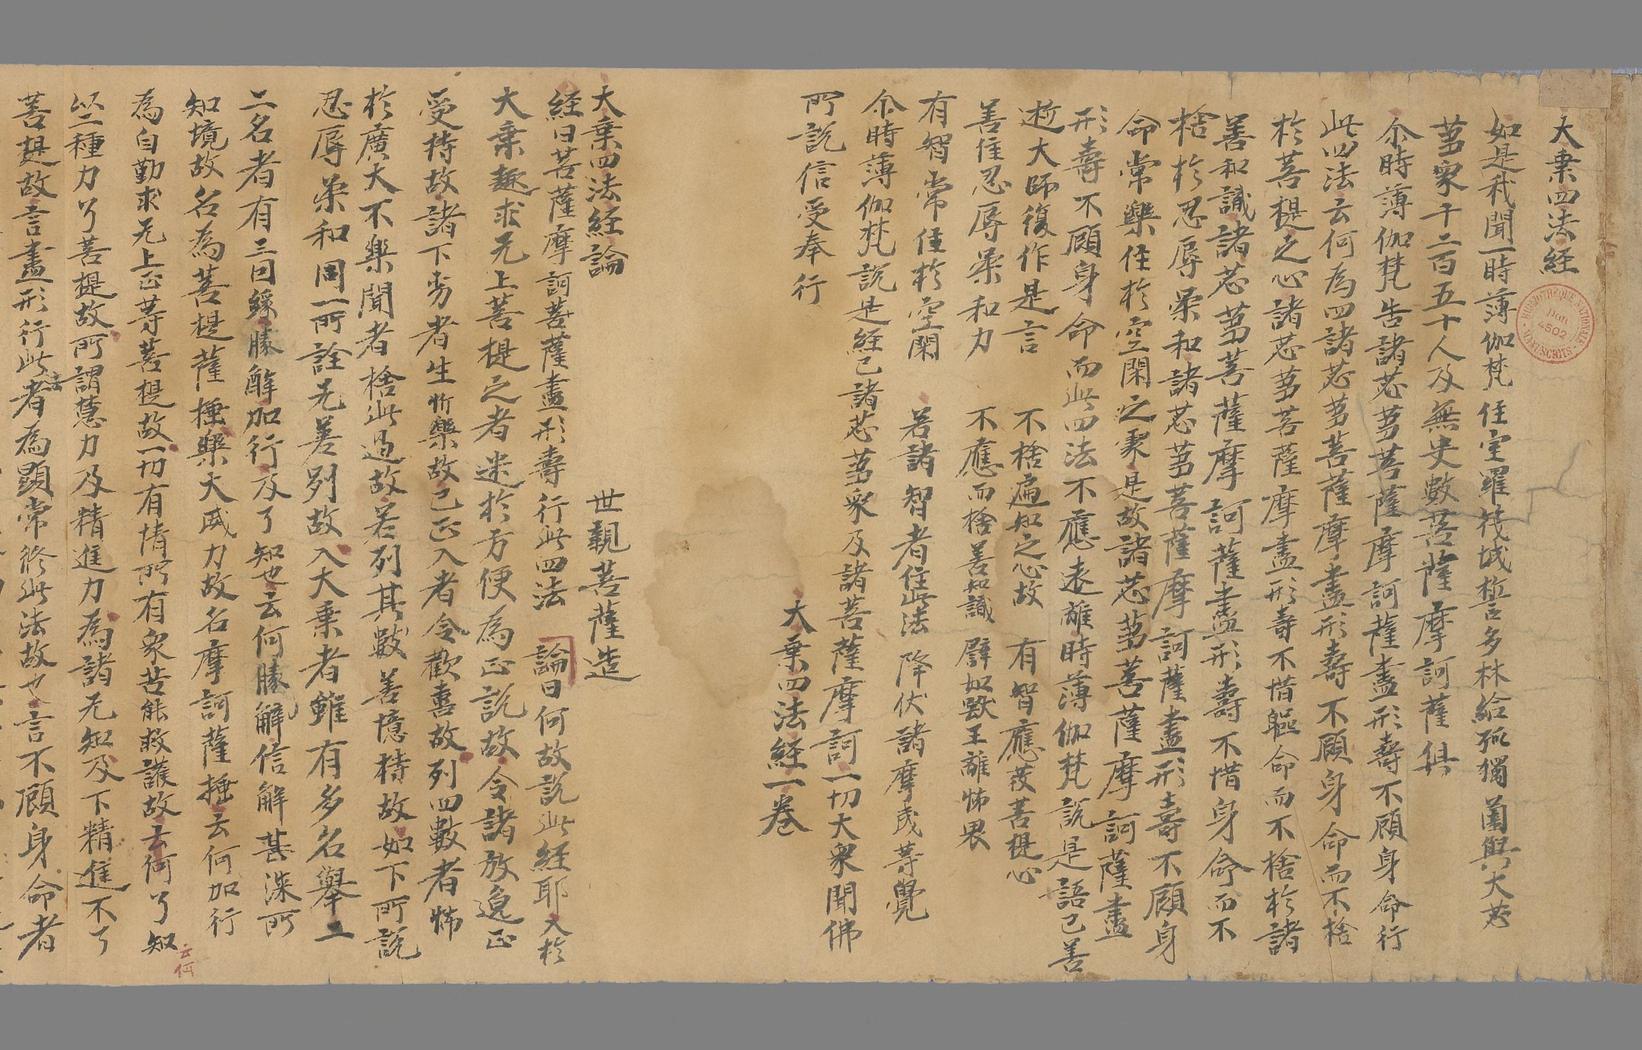 大乗四法経
如是我聞一時薄伽梵住室羅筏城誓多林給孤獨薗與大苾
蒭衆千二百五十人及無史數菩薩摩訶薩俱
尒時薄伽梵告諸苾蒭菩薩摩訶薩盡形壽不顧身命行
此四法云何為四諸苾蒭菩薩摩訶薩盡形壽不顧身命而不捨
於菩提之心諸苾蒭菩薩摩訶薩盡形壽不惜軀命而不捨於諸
善知識諸苾蒭菩薩摩訶薩盡形壽不惜身命而不
捨於忍辱柔和諸苾蒭菩薩摩訶薩盡形壽不顧身
命常樂住於空閑之處是故諸苾蒭菩薩摩訶薩盡
形壽不顧身命而此四法不應遠離時薄伽梵說是語已善
逝大師復作是言 不捨遍知之心故 有智應發菩提心
善住忍辱柔和力 不應而捨善知識 譬如獸王離怖畏
有智常住於空閑 若諸智者住此法 降伏諸摩或等覺
尒時薄伽梵說是経已諸苾蒭衆及諸菩薩摩訶一切大衆聞佛
所說信受奉行
大乗四法経一巻
大乗四法経論 世親菩薩造
経曰菩薩摩訶菩薩盡形壽行此四法 論曰何故說此経耶入於
大乗趣求无上菩提之者迷於方便為正說故令諸放逸正
受持故諸下劣者生忻樂故已正入者令歡喜故列四數者怖
於廣大不樂聞者捨此過故若列其數善憶持故如下所說
忍辱柔和同一所詮无善列故入大乗者雖有多名舉二
二名者有三回緣勝解加行及了知也云何勝解信解甚深所
知境故名為菩提薩埵樂大威力故名摩訶薩埵云何加行
為自勤求无上正等菩提故一切有情所有衆苦能救護故云何了知
以二種力了菩提故所謂慧力及精進力為諸无知及下精進不了
菩提故言盡形行此法者為顯常修此法故也言不顧身命者
云何